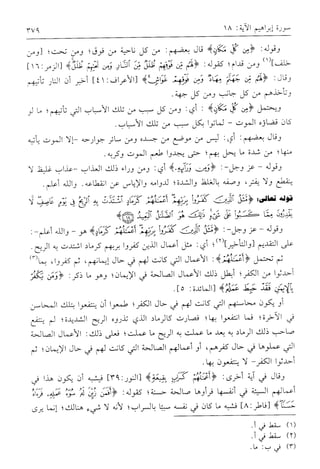 سورة إبراهيم الآية: ١٨ ٣٧٩
وقوله: ﴿مِن كُلِّ مَكَانٍ﴾ قال بعضهم: من كل ناحية من فوق؛ ومن تحت؛ [ومن
خلف](١) ومن قدام؛ كقوله: ﴿لَهُم مِّن فَوْقِهِمْ ظُلَلٌ مِّنَ ٱلنَّارِ وَمِن تَحْتِهِمْ ظُلَلٌ﴾ [الزمر: ١٦]
وقال: ﴿لَهُم مِّن جَهَنَّمَ مِهَادٌ وَمِن فَوْقِهِمْ غَوَاشٍ﴾ [الأعراف: ٤١] أخبر أن النار تأتيهم
وتأخذهم من كل جانب ومن كل جهة.
ويحتمل ﴿مِن كُلِّ مَكَانٍ﴾: أي: ومن كل سبب من تلك الأسباب التي تأتيهم؛ ما لو
كان قضاؤه الموت - لماتوا بكل سبب من تلك الأسباب.
وقال بعضهم: أي: ليس من موضع من جسده ومن سائر جوارحه -إلا الموت يأتيه
منها؛ من شدة ما يحل بهم؛ حتى يجدوا طعم الموت وكربه.
وقوله - عز وجل-: ﴿وَمِن وَرَآئِهِۦ﴾ أي: ومن وراء ذلك العذاب -عذاب غليظ لا
ينقطع ولا يفتر، وصفه بالغلظ والشدة؛ لدوامه والإياس عن انقطاعه. والله أعلم.
قوله تعالى: ﴿مَّثَلُ ٱلَّذِينَ كَفَرُوا۟ بِرَبِّهِمْ أَعْمَٰلُهُمْ كَرَمَادٍ ٱشْتَدَّتْ بِهِ ٱلرِّيحُ فِى يَوْمٍ عَاصِفٍ لَّا
يَقْدِرُونَ مِمَّا كَسَبُوا۟ عَلَىٰ شَىْءٍ ذَٰلِكَ هُوَ ٱلضَّلَٰلُ ٱلْبَعِيدُ﴾
وقوله - عز وجل-: ﴿مَّثَلُ ٱلَّذِينَ كَفَرُوا۟ بِرَبِّهِمْ أَعْمَٰلُهُمْ﴾ هو - والله أعلم-:
على التقديم [والتأخير](٢)؛ أي: مثل أعمال الذين كفروا بربهم كرماد اشتدت به الريح.
ثم تحتمل ﴿أَعْمَٰلُهُمْ﴾: الأعمال التي كانت لهم في حال إيمانهم، ثم كفروا، بما(٣)
أحدثوا من الكفر؛ أبطل ذلك الأعمال الصالحة في الإيمان؛ وهو ما ذكر: ﴿وَمَن يَكْفُرْ
بِٱلْإِيمَٰنِ فَقَدْ حَبِطَ عَمَلُهُۥ﴾ [المائدة: ٥].
أو يكون محاسنهم التي كانت لهم في حال الكفر؛ طمعوا أن ينتفعوا بتلك المحاسن
في الآخرة؛ فما انتفعوا بها؛ فصارت كالرماد الذي تذروه الريح الشديدة؛ لم ينتفع
صاحب ذلك الرماد به بعد ما عملت به الريح ما عملت؛ فعلى ذلك: الأعمال الصالحة
التي عملوها في حال كفرهم، أو أعمالهم الصالحة التي كانت لهم في حال الإيمان؛ ثم
أحدثوا الكفر- لا ينتفعون بها.
وقال في آية أخرى: ﴿أَعْمَٰلُهُمْ كَسَرَابٍۭ بِقِيعَةٍ﴾ [النور: ٣٩] فيشبه أن يكون هذا في
أعمالهم السيئة في أنفسها فرأوها صالحة حسنة؛ كقوله: ﴿أَفَمَن زُيِّنَ لَهُۥ سُوٓءُ عَمَلِهِۦ فَرَءَاهُ
حَسَنًا﴾ [فاطر: ٨] فشبه ما كان في نفسه سيئا بالسراب؛ لأنه لا شيء هنالك؛ إنما يرى
(١) سقط في أ.
(٢) سقط في أ.
(٣) في ب: ما.